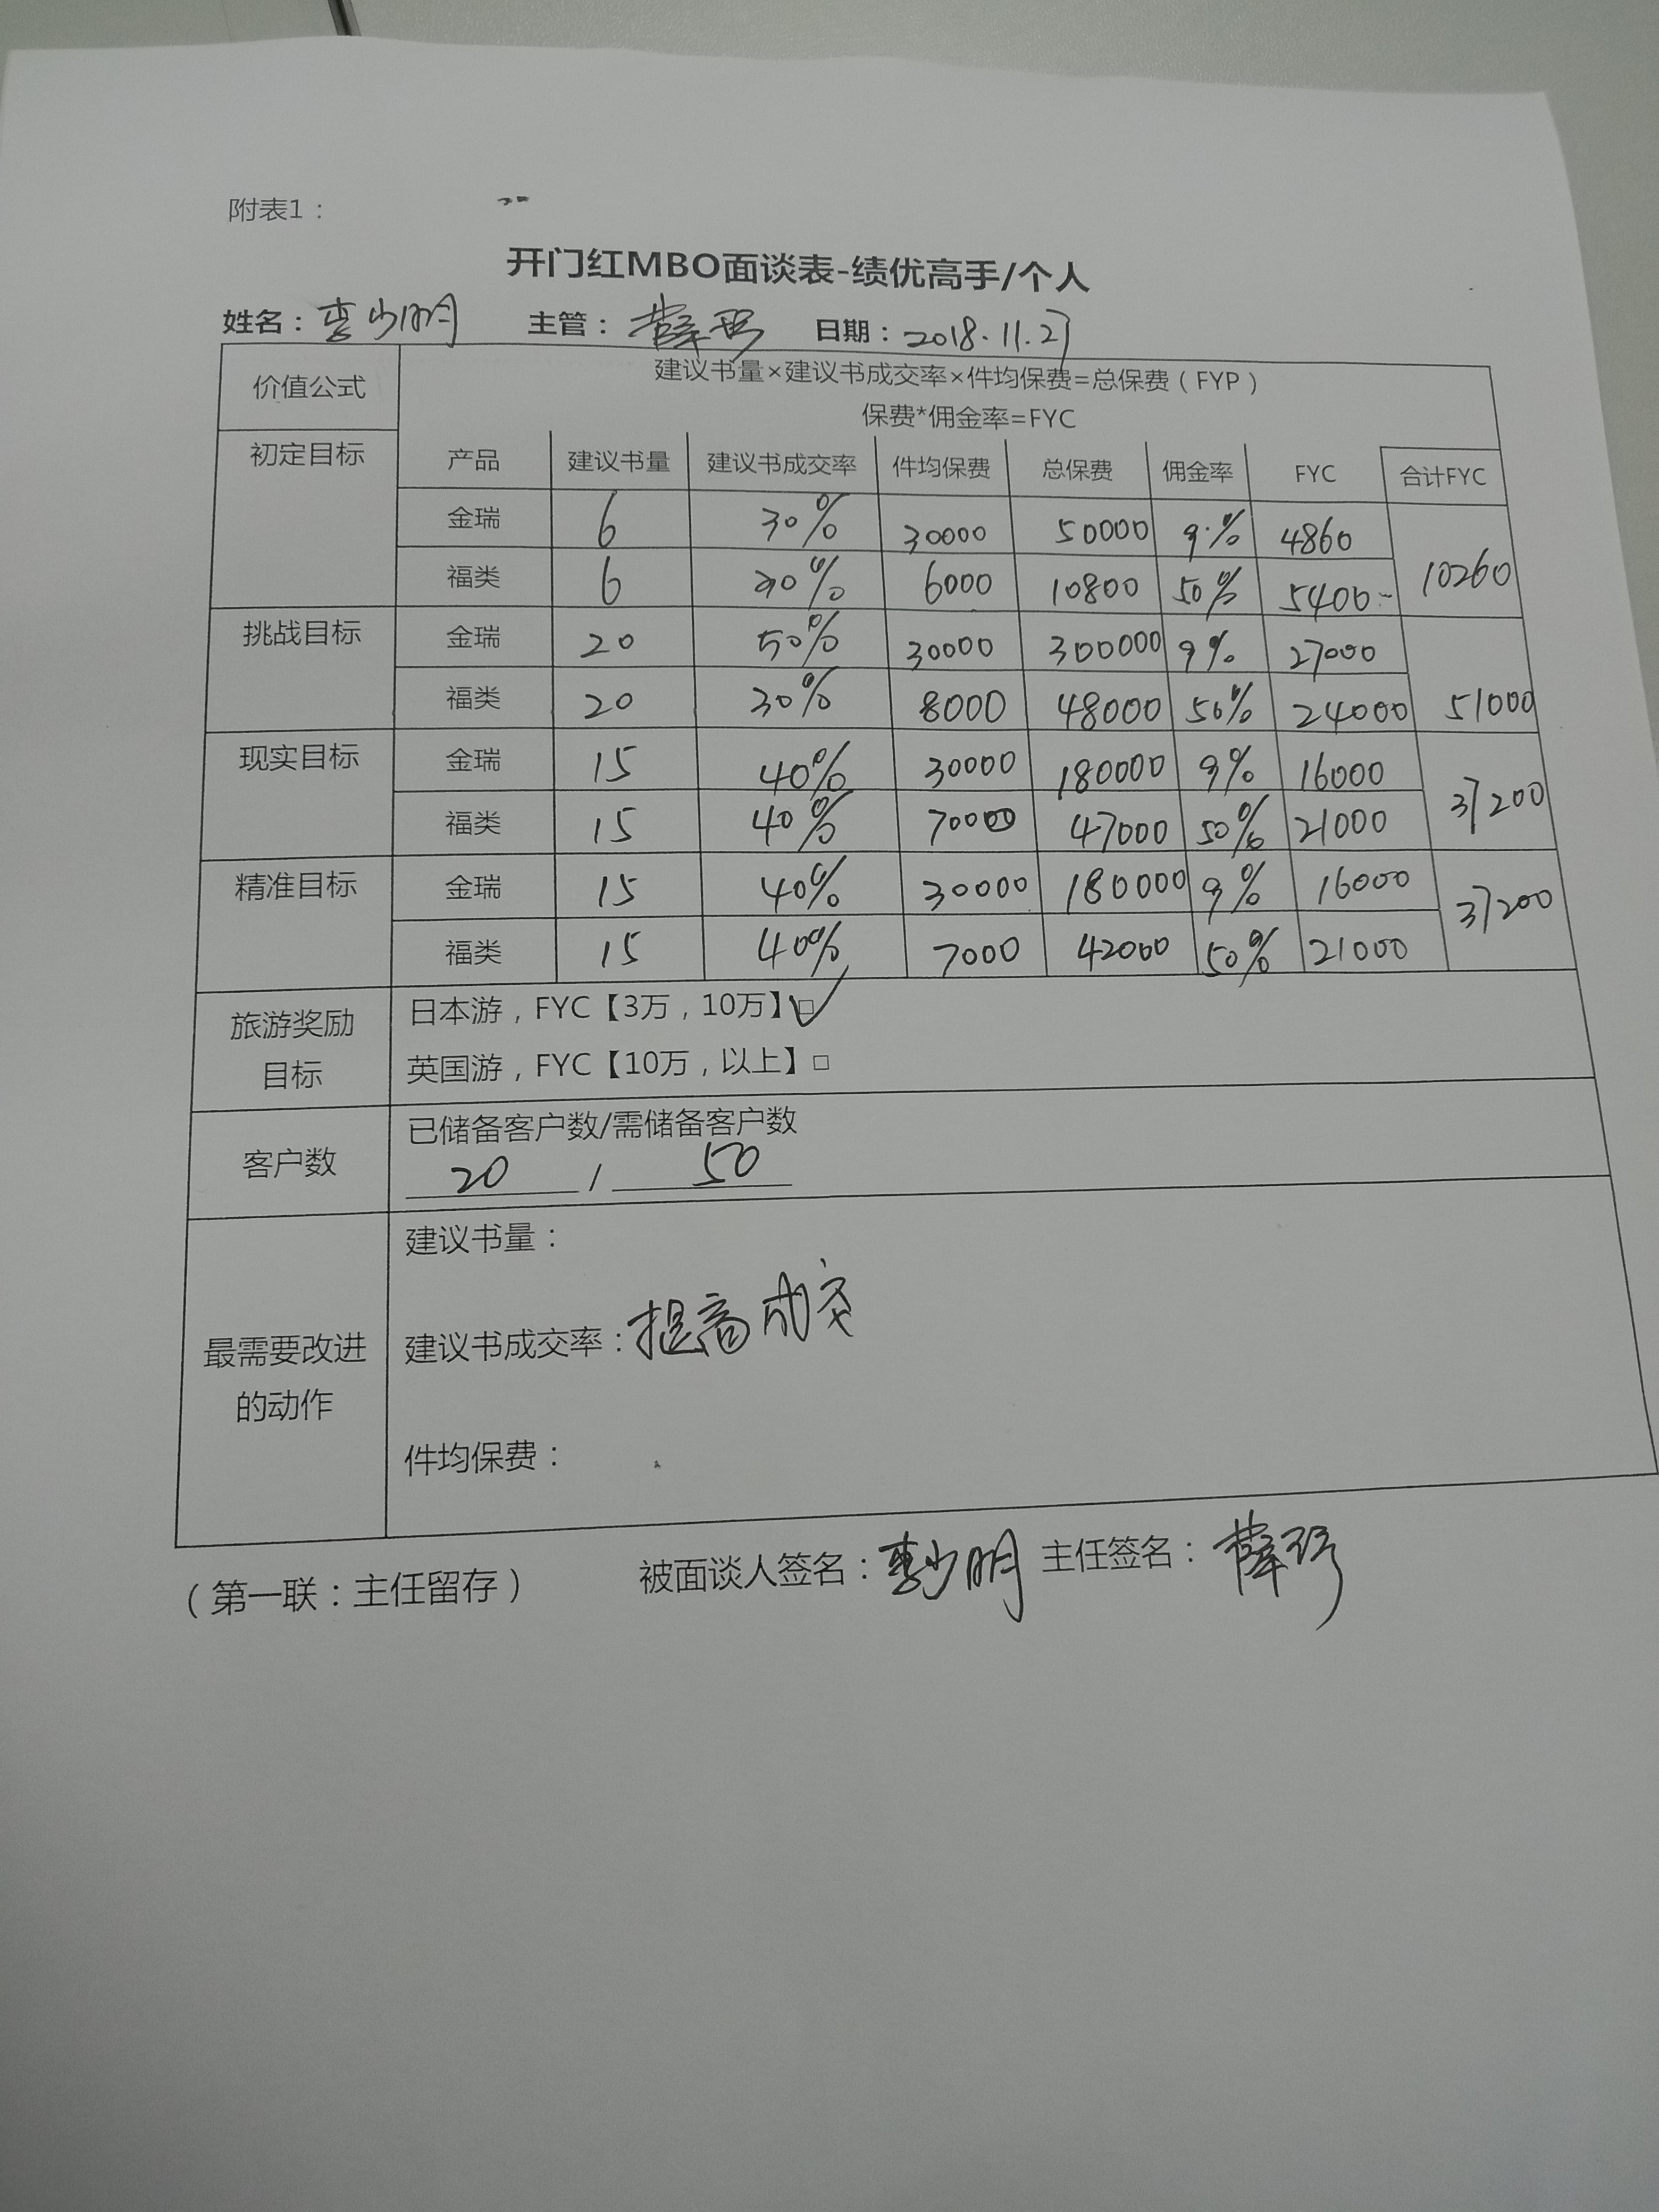 附表1：
开门红MBO面谈表-绩优高手/个人
姓名：李少明 主管：薛 日期：2018.11.27
价值公式 建议书量×建议书成交率×件均保费=总保费（FYP）
保费*佣金率=FYC
初定目标 产品 建议书量 建议书成交率 件均保费 总保费 佣金率 FYC 合计FYC
金瑞 6 30% 30000 50000 9.% 4860
福类 6 30% 6000 10800 50% 5400 10260
挑战目标 金瑞 20 50% 30000 300000 9% 27000
福类 20 30% 8000 48000 50% 24000 51000
现实目标 金瑞 15 40% 30000 180000 9% 16000
福类 15 40% 70000 47000 50% 21000 37200
精准目标 金瑞 15 40% 30000 180000 9% 16000
福类 15 40% 7000 42000 50% 21000 37200
旅游奖励目标 日本游，FYC【3万，10万】☑
英国游，FYC【10万，以上】□
客户数 已储备客户数/需储备客户数
20 / 50
最需要改进的动作 建议书量：
建议书成交率：提高成交
件均保费：
（第一联：主任留存） 被面谈人签名：李少明 主任签名：薛